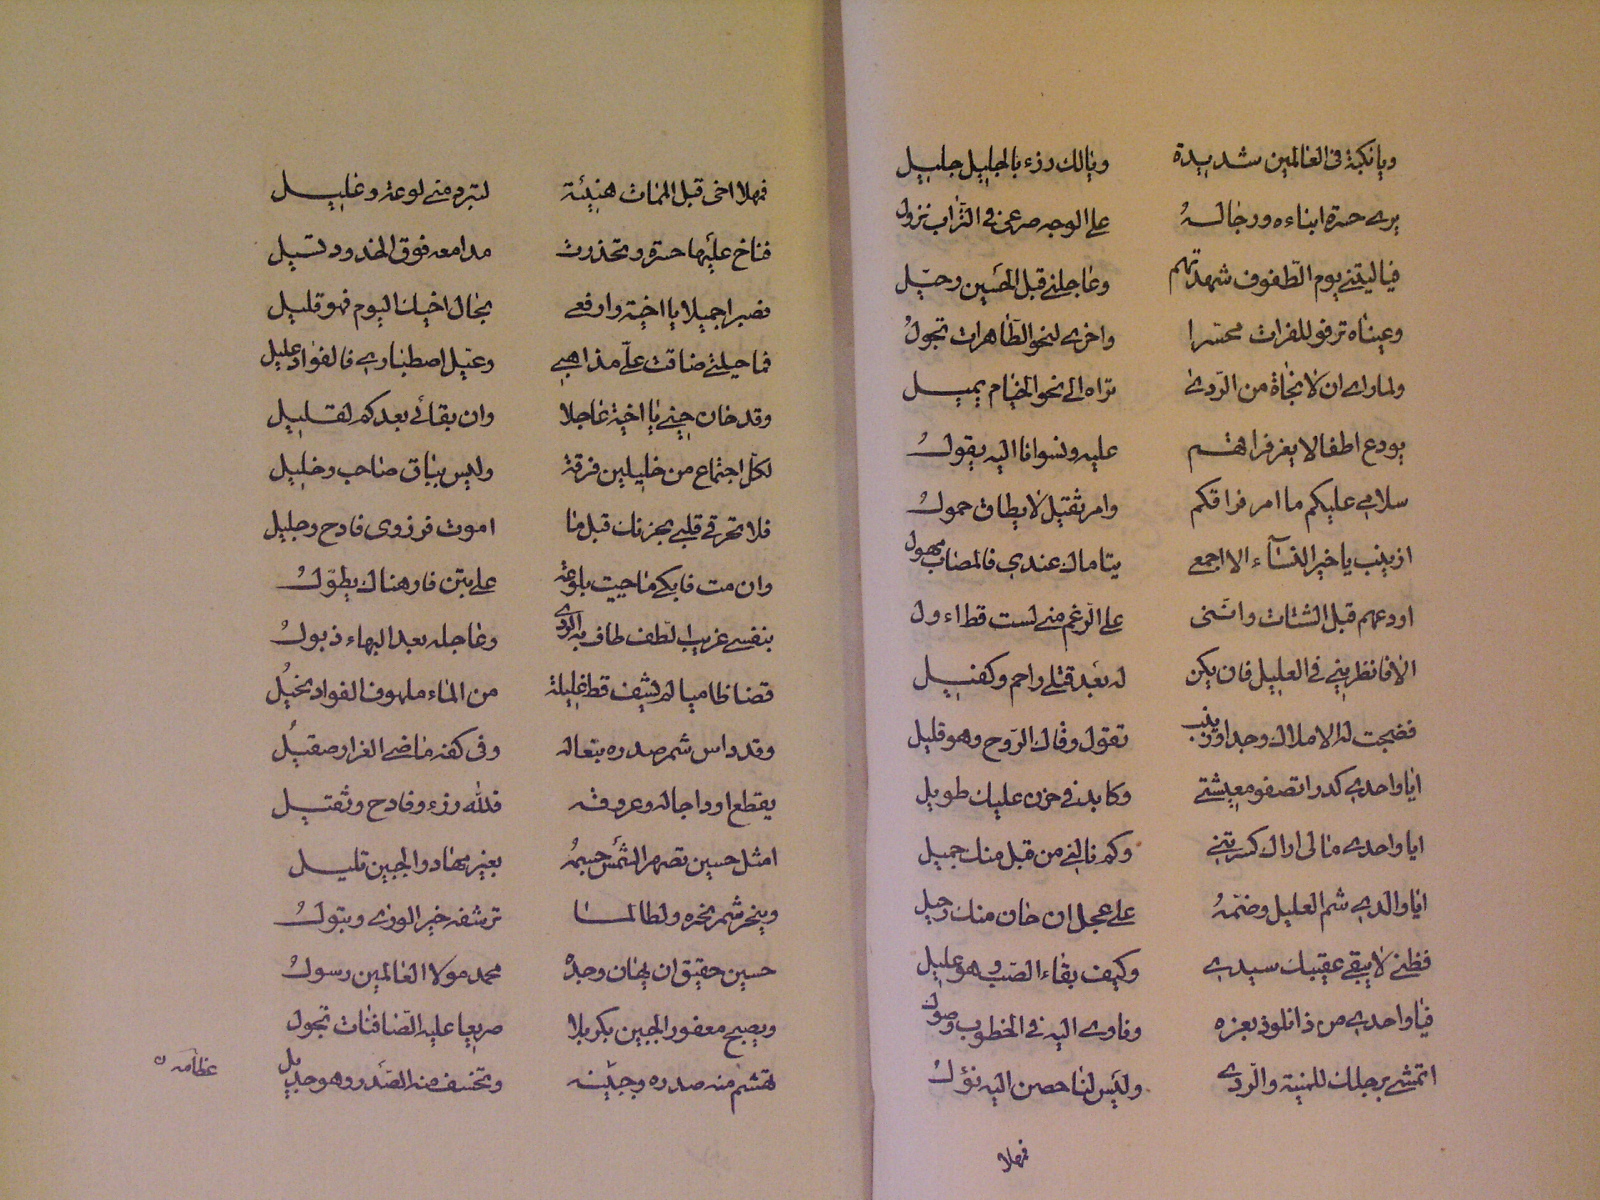 ويا نكبة في العالمين شديدة ويا لك رزء بالجليل جليل
يرى حسرة ابناءه ورجاله على الوجه صرعى في التراب نزول
فيا ليتني يوم الطفوف شهدتهم وعاجلني قبل الحسين رحيل
وعيناه ترقو للفرات محسرا واخرى لنحو الطاهرات تجول
ولما راى ان لا نجاة من الردى تراه الى نحو الخيام يميل
يودع اطفالا يعز فراقهم عليه ونسوانا اليه يقول
سلامي عليكم ما امر فراقكم وامر ثقيل لا يطاق حمول
ازينب يا خير النساء الا اجمعي يتاماك عندي فالمصاب مهول
اودعهم قبل الشتات وانثنى على الرغم مني لست قط اءول
الا فانظريني في العليل فان يكن له بعد قتلي راحم وكفيل
فضجت له الاملاك وجدا وزينب تقول وفاك الروح وهو قليل
ايا واحدي كدرا تصفو معيشتي وكابدني حزن عليك طويل
ايا واحدي مالي اراك كسرتني وكم نالني من قبل منك جميل
ايا والدي شم العليل وضمه على عجل ان حان منك رحيل
فظني لا يبقى عقيبك سيدي وكيف بقاء الصب وهو عليل
فيا واحدي من ذا نلوذ بعزه وناوي اليه في الخطوب وصول
اتمشي برجلك للمنية والردى وليس لنا حصن اليه نؤل
فهلا
فمهلا اخي قبل الممات هنيئة لتبرد مني لوعة وغليل
فناخ عليها حسرة وتحذرت مدامعه فوق الخدود تسيل
فصبرا جميلا يا اخية وارفعي بحال اخيك اليوم فهو قليل
فما حيلتي ضاقت علي مذاهبي وعيل اصطباري فالفؤاد عليل
وقد حان حيني يا اخية عاجلا وان بقائي بعدكم لقليل
لكل اجتماع من خليلين فرقة وليس بباق صاحب وخليل
فلا تحرقي قلبي بحزنك قبل ما اموت فرزوى فادح وجليل
وان مت فابكي ما حييت بلوعة على بتن فاوهناك يطول
بنفسي غريب الطف طاف به الردى وعاجله بعد البهاء ذبول
قضا ظاميا لم يشف قط غليلة من الماء ملهوف الفواد نحيل
وقد داس شمر صدره بنعاله وفى كفه ماضي الغرار صقيل
يقطع اوداجا له وعروقه فلله رزء وفادح وثقيل
امثل حسين تصهر الشمس جسمه بغير مهاد والجبين تليل
وينحر شمر نحره ولطالما ترشفه خير الورى وبتول
حسين حقيق ان يهان وجده محمد مولا العالمين رسول
ويصبح معفور الجبين بكربلا صريعا عليه الصافنات تجول
تهشم منه صدره وجبينه وتخسف منه الصدر وهو جديل
عظامه